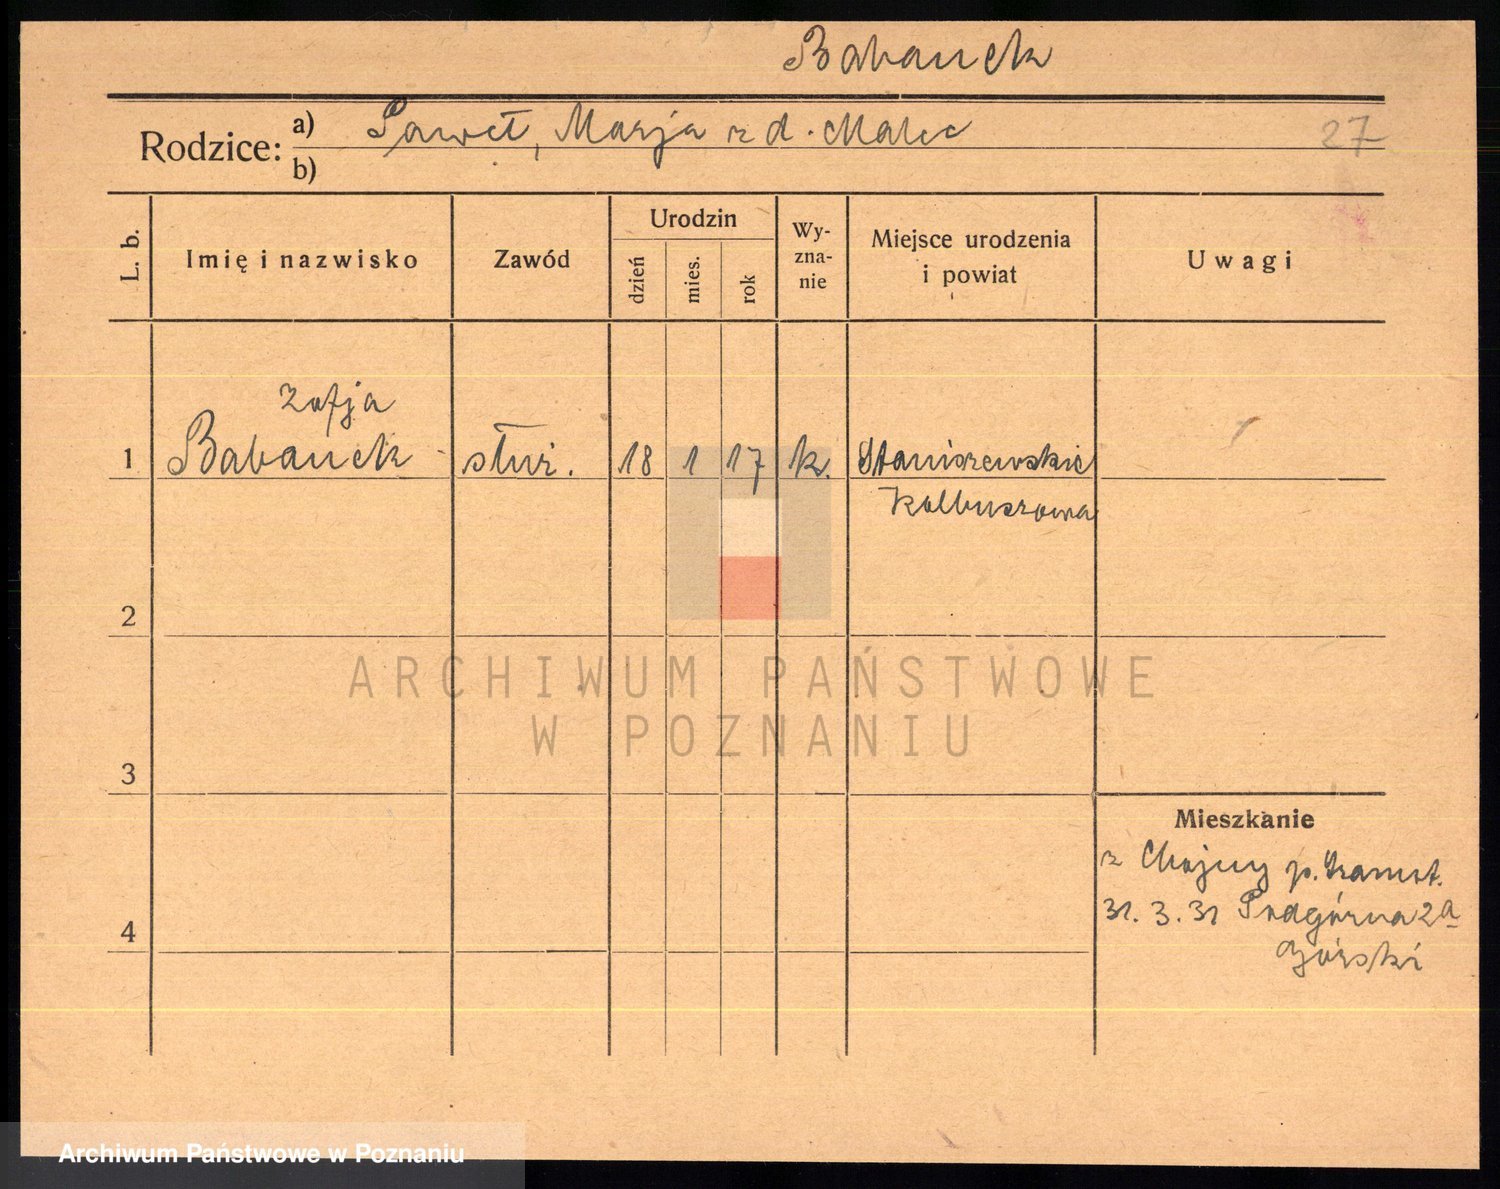 Babauek
Rodzice: a) Paweł, Marja z d. Malec
27
b)
L. b.
Imię i nazwisko
Zawód
Urodzin
dzień
mies.
rok
Wy-
zna-
nie
Miejsce urodzenia
i powiat
Uwagi
Zofja
1 Babauek służ. 18 1 17 k. Staniszewskie
Kolbuszowa
2
3
4
Mieszkanie
z Chojny p. 
31. 3. 31 Podgórna 2a
Górski
ARCHIWUM PAŃSTWOWE
W POZNANIU
Archiwum Państwowe w Poznaniu